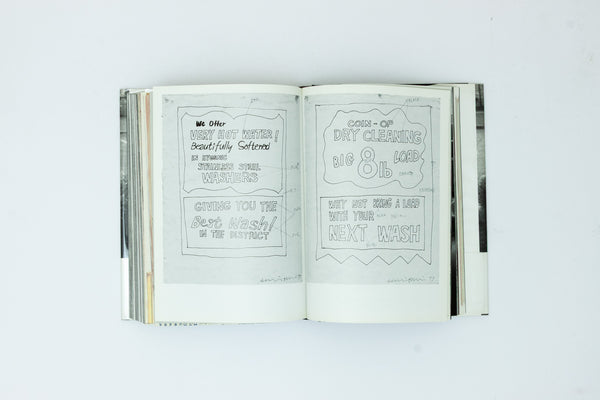 We Offer
VERY HOT WATER!
Beautifully Softened
STAINLESS STEEL
WASHERS
GIVING YOU THE
Best Wash!
IN THE DISTRICT
COIN-OP
DRY CLEANING
BIG 8 lb LOAD
WHY NOT BRING A LOAD
WITH YOUR
NEXT WASH